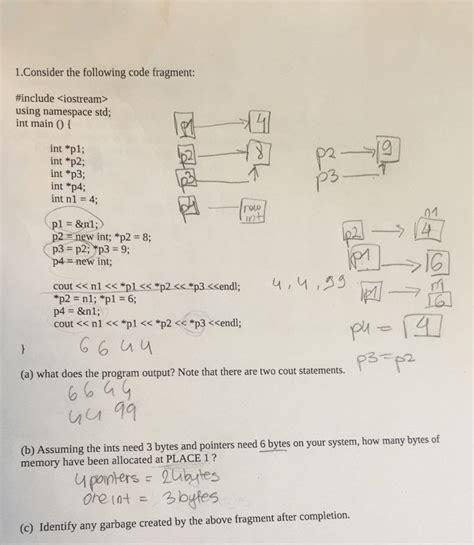 1.Consider the following code fragment:
#include <iostream>
using namespace std;
int main () {
int *p1;
int *p2;
int *p3;
int *p4;
int n1 = 4;
p1 = &n1;
p2 = new int; *p2 = 8;
p3 = p2; *p3 = 9;
p4 = new int;
cout << n1 << *p1 << *p2 << *p3 <<endl;
*p2 = n1; *p1 = 6;
p4 = &n1;
cout << n1 << *p1 << *p2 << *p3 <<endl;
}
p1 4
p2 8
p3
p4 new int
p2 9
p3
n1
p2 4
p1 6
p1 6
p4 = 4
p3=p2
4, 4, 99
6 6 4 4
(a) what does the program output? Note that there are two cout statements.
6 6 4 4
4 4 99
(b) Assuming the ints need 3 bytes and pointers need 6 bytes on your system, how many bytes of
memory have been allocated at PLACE 1 ?
4 pointers = 24 bytes
one int = 3 bytes
(c) Identify any garbage created by the above fragment after completion.